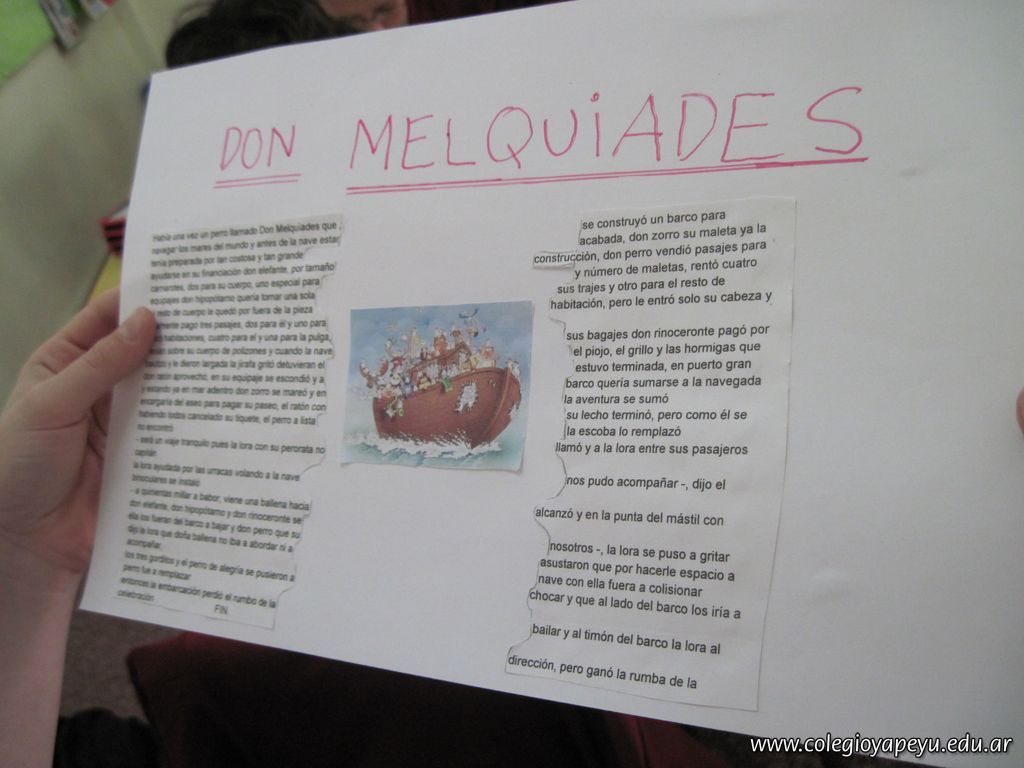 DON MELQUiADES
Había una vez un perro llamado Don Melquiades que
navegar los mares del mundo y antes de la nave estar
tenía preparada por tan costosa y tan grande
ayudarse en su financiación don elefante, por tamaño
camarotes, dos para su cuerpo, uno especial para
equipajes don hipopótamo quería tomar una sola
resto de cuerpo le quedó por fuera de la pieza
pago tres pasajes, dos para él y uno para
habitaciones, cuatro para el y una para la pulga,
sobre su cuerpo de polizones y cuando la nave
y le dieron largada la jirafa gritó detuvieran el
don ratón aprovechó, en su equipaje se escondió y a
y estando ya en mar adentro don zorro se mareó y en
encargaría del aseo para pagar su paseo, el ratón con
habiendo todos cancelado su tiquete, el perro a lista
no encontró
- será un viaje tranquilo pues la lora con su perorata no
capitán
la lora ayudada por las urracas volando a la nave
binoculares se instaló
- a quinientas millar a babor, viene una ballena hacia
don elefante, don hipopótamo y don rinoceronte se
ella los fueran del barco a bajar y don perro que su
dijo la lora que doña ballena no iba a abordar ni a
acompañar.
los tres gorditos y el perro de alegría se pusieron a
perro fue a remplazar
entonces la embarcación perdió el rumbo de la
celebración
FIN.
se construyó un barco para
acabada, don zorro su maleta ya la
construcción, don perro vendió pasajes para
y número de maletas, rentó cuatro
sus trajes y otro para el resto de
habitación, pero le entró solo su cabeza y
sus bagajes don rinoceronte pagó por
el piojo, el grillo y las hormigas que
estuvo terminada, en puerto gran
barco quería sumarse a la navegada
la aventura se sumó
su lecho terminó, pero como él se
la escoba lo remplazó
llamó y a la lora entre sus pasajeros
nos pudo acompañar -, dijo el
alcanzó y en la punta del mástil con
nosotros -, la lora se puso a gritar
asustaron que por hacerle espacio a
nave con ella fuera a colisionar
chocar y que al lado del barco los iría a
bailar y al timón del barco la lora al
dirección, pero ganó la rumba de la
www.colegioyapeyu.edu.ar